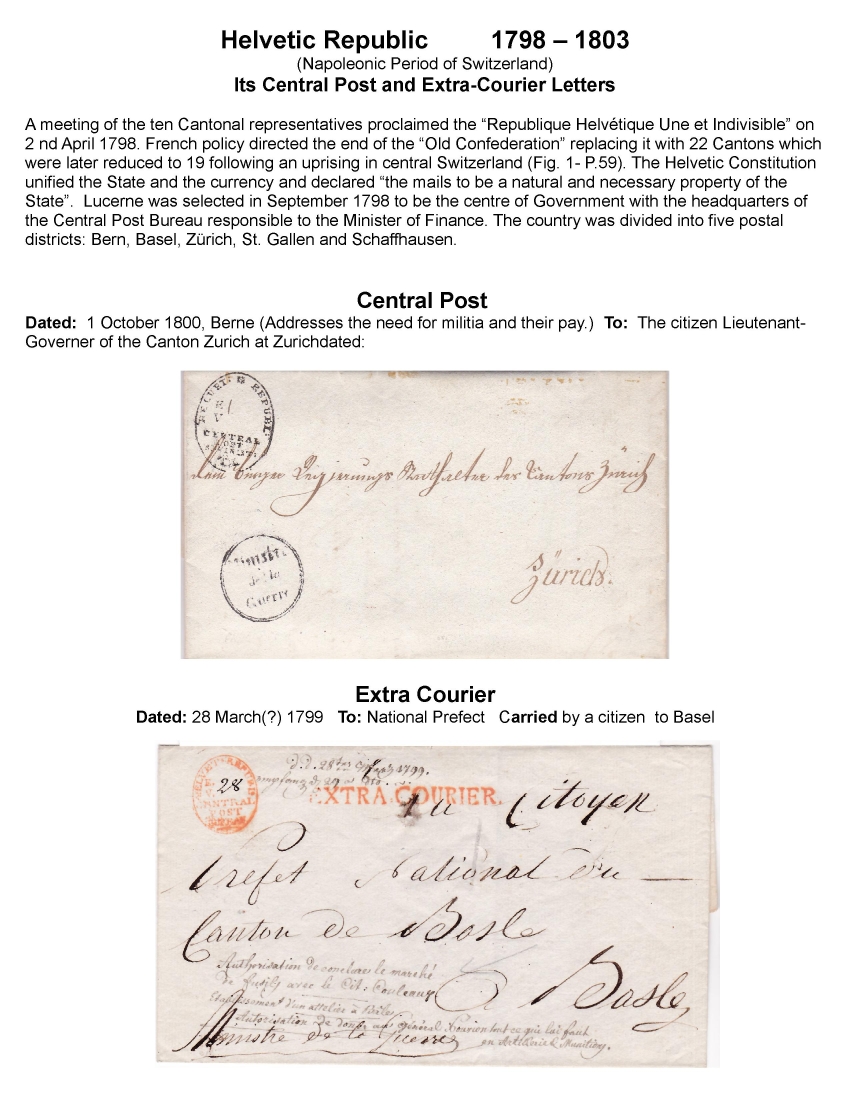 Helvetic Republic 1798 – 1803
(Napoleonic Period of Switzerland)
Its Central Post and Extra-Courier Letters
A meeting of the ten Cantonal representatives proclaimed the “Republique Helvétique Une et Indivisible” on
2 nd April 1798. French policy directed the end of the “Old Confederation” replacing it with 22 Cantons which
were later reduced to 19 following an uprising in central Switzerland (Fig. 1- P.59). The Helvetic Constitution
unified the State and the currency and declared “the mails to be a natural and necessary property of the
State”. Lucerne was selected in September 1798 to be the centre of Government with the headquarters of
the Central Post Bureau responsible to the Minister of Finance. The country was divided into five postal
districts: Bern, Basel, Zürich, St. Gallen and Schaffhausen.
Central Post
Dated: 1 October 1800, Berne (Addresses the need for militia and their pay.) To: The citizen Lieutenant-
Governer of the Canton Zurich at Zurichdated:
REPUBL.
CENTRAL
POST
Dem Bürger Regierungs Statthalter des Cantons Zürich
Zürich.
Ministre
de la
Guerre
Extra Courier
Dated: 28 March(?) 1799 To: National Prefect Carried by a citizen to Basel
d.d. 28ten 1799.
28
CENTRAL
POST
EXTRA.COURIER.
Au Citoyen
Prefet National du
Canton de Basle
Authorisation de conclure le marché
de fusils avec le Cit:
à Basle
Etablissement d'un attelier à
Autorisation de donner au général tout ce que lui faut
en Artillerie & Munitions.
Ministre de la Guerre